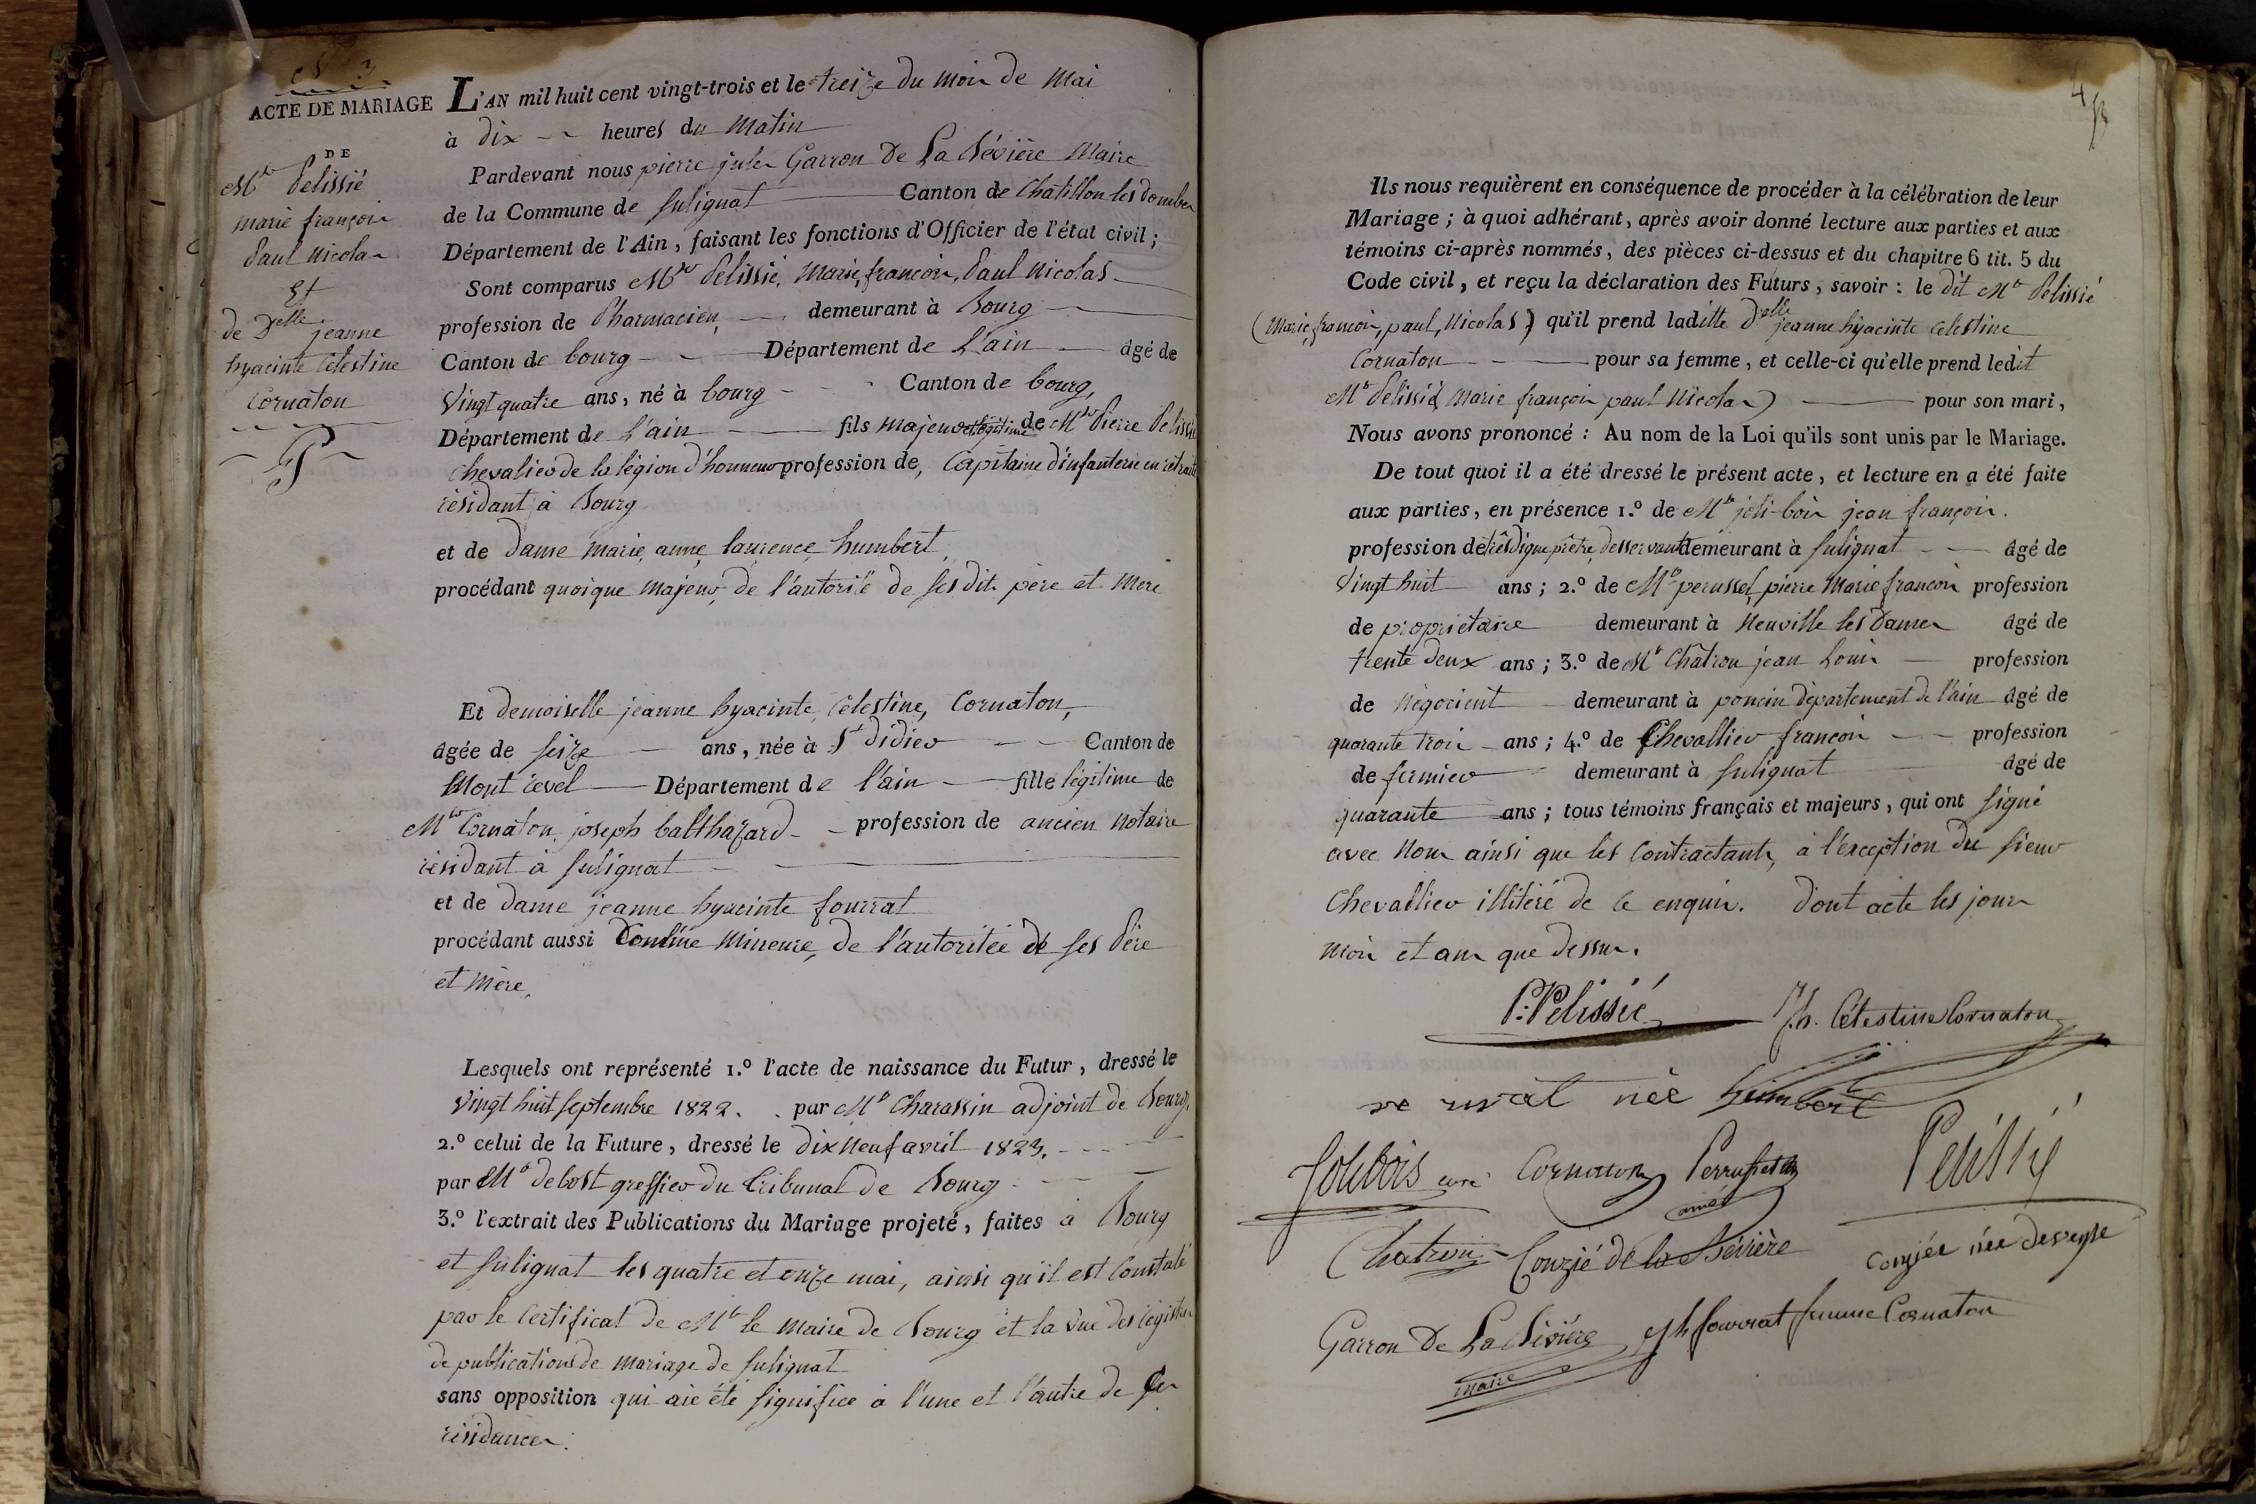 ACTE DE MARIAGE
DE
Mr Pelissié
marie françois
Paul Nicolas
Et
de Delle jeanne
hyacinte Celestine
Cornaton
L'AN mil huit cent vingt-trois et le treize du mois de Mai
à dix heures du Matin
Pardevant nous pierre jules Garron De La Bévière Maire
de la Commune de Sulignat Canton de Chatillon les dombes
Département de l'Ain, faisant les fonctions d'Officier de l'état civil;
Sont comparus Mr Pelissié, Marie, françois, Paul Nicolas
profession de Pharmacien, demeurant à Bourg
Canton de bourg Département de L'ain âgé de
Vingt quatre ans, né à bourg Canton de bourg,
Département de L'ain fils majeur et légitime de Mr Pierre Pelissié
Chevalier de la légion d'honneur profession de, Capitaine d'infanterie en retraite
résidant à Bourg
et de Dame Marie, anne, laurence, humbert,
procédant quoique majeur, de l'autorité de ses dits père et Mere
Et demoiselle jeanne hyacinte, Celestine, Cornaton,
âgée de seize ans, née à St Didier Canton de
Mont revel Département de l'ain fille légitime de
Mr Cornaton, joseph balthazard profession de ancien Notaire
résidant à Sulignat
et de Dame jeanne hyacinte fourrat
procédant aussi Comme Mineure, de l'autoritée de ses Père
et Mère,
Lesquels ont représenté 1.º l'acte de naissance du Futur, dressé le
Vingt huit Septembre 1822. par Mr Charassin adjoint de Bourg,
2.º celui de la Future, dressé le dix Neuf avril 1823.
par Mr debost greffier du tribunal de Bourg
3.º l'extrait des Publications du Mariage projeté, faites à Bourg
et Sulignat les quatre et onze mai, ainsi qu'il est Constaté
par le Certificat de Mr le Maire de Bourg et la vue des registres
de publications de mariage de Sulignat
sans opposition qui aie été signifiée à l'une et l'autre de Ces
résidances.
Ils nous requièrent en conséquence de procéder à la célébration de leur
Mariage; à quoi adhérant, après avoir donné lecture aux parties et aux
témoins ci-après nommés, des pièces ci-dessus et du chapitre 6 tit. 5 du
Code civil, et reçu la déclaration des Futurs, savoir: le dit Mr Pelissié
(Marie, françois, paul, Nicolas) qu'il prend ladite Delle jeanne hyacinte Celestine
Cornaton pour sa femme, et celle-ci qu'elle prend ledit
Mr Pelissié (Marie françois paul Nicolas) pour son mari,
Nous avons prononcé: Au nom de la Loi qu'ils sont unis par le Mariage.
De tout quoi il a été dressé le présent acte, et lecture en a été faite
aux parties, en présence 1.º de Mr joli-bois jean françois.
profession de très digne prêtre, desservant demeurant à Sulignat âgé de
Vingt huit ans; 2.º de Mr perussel, pierre Marie françois profession
de propriétaire demeurant à Neuville les Dames âgé de
trente deux ans; 3.º de Mr Châtron jean Louis profession
de Négocient demeurant à poncin département de l'ain âgé de
quarante trois ans; 4.º de Chevallier françois profession
de fermier demeurant à Sulignat âgé de
quarante ans; tous témoins français et majeurs, qui ont Signé
avec Nous ainsi que les Contractants, à l'exception du Sieur
Chevallier illitéré de Ce enquis. Dont acte les jour
Mois et an que dessus.
P. Pelissié
Jh. Célestine Cornaton
née humbert
Jolibois curé
Cornaton
Perrussel
ainé
Pelissié
Chatron
Conzié de la Bévière
Conzié née deveyle
Garron De La Bévière
maire
Jh fourrat femme Cornaton